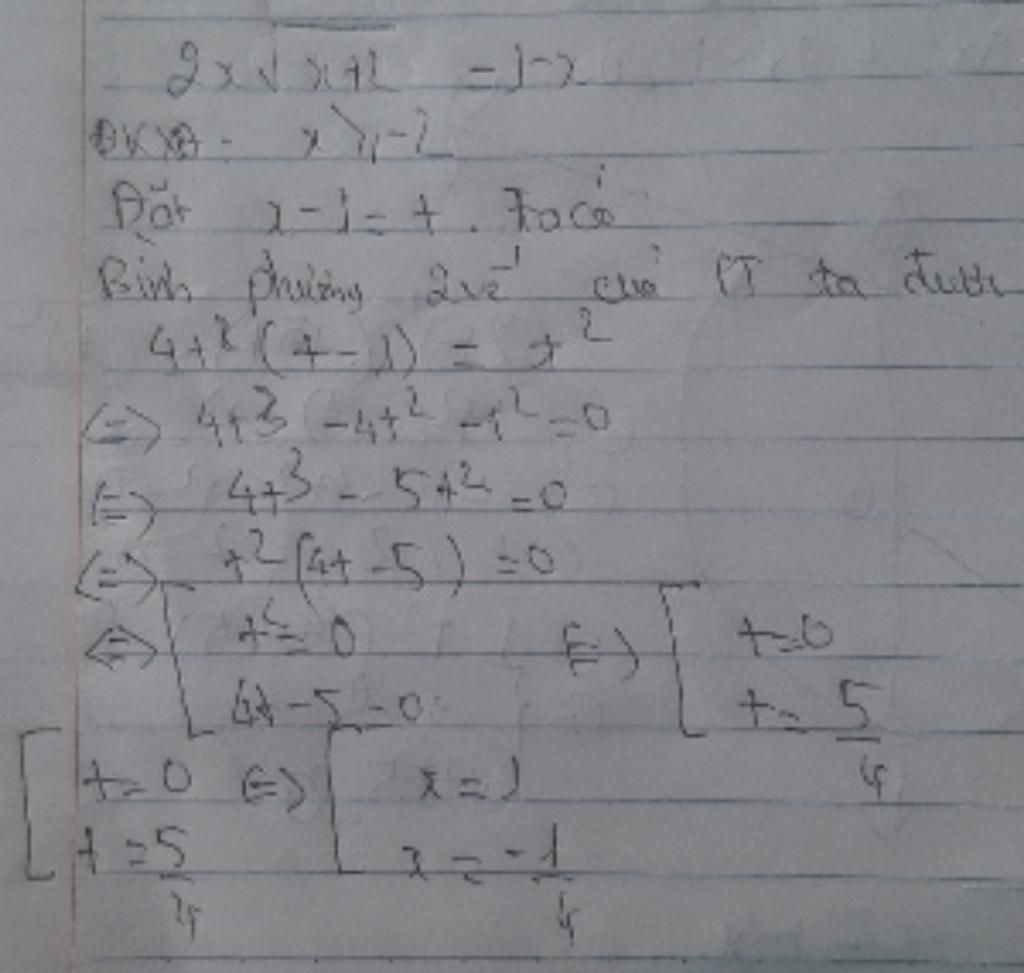 2x√x+2 = 1-x
ĐKXĐ: x ≥ -2
Đặt x-1 = t. Ta có
Bình phương 2 vế của PT ta được
4t²(t-1) = t²
<=> 4t³ -4t² -t² =0
<=> 4t³ - 5t² =0
<=> t²(4t-5) =0
<=> [ t²= 0 <=> [ t=0
4t-5=0 t= 5/4
[ t=0 <=> [ x=1
t=5/4 x= -1/4